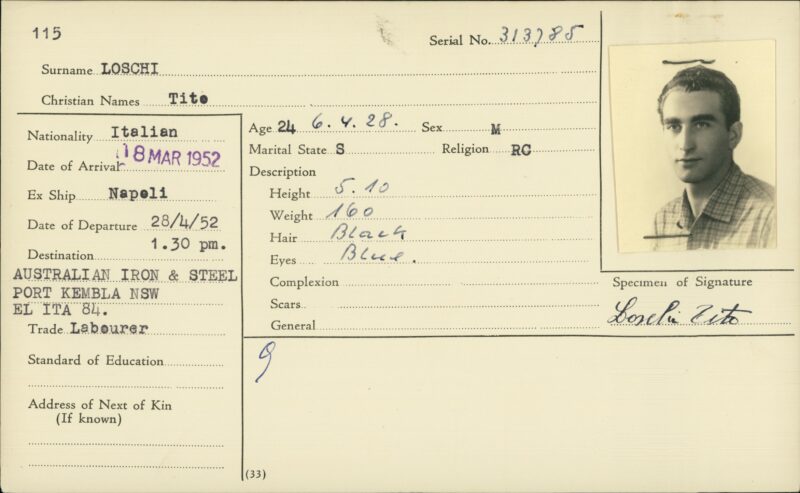 115
Serial No. 313785
Surname LOSCHI
Christian Names Tito
Nationality Italian
Date of Arrival 18 MAR 1952
Ex Ship Napoli
Date of Departure 28/4/52
1.30 pm.
Destination
AUSTRALIAN IRON & STEEL
PORT KEMBLA NSW
EL ITA 84.
Trade Labourer
Standard of Education
Address of Next of Kin
(If known)
Age 24 6.4.28. Sex M
Marital State S Religion RC
Description
Height 5.10
Weight 160
Hair Black
Eyes Blue.
Complexion
Scars
General
9
(33)
Specimen of Signature
Loschi Tito